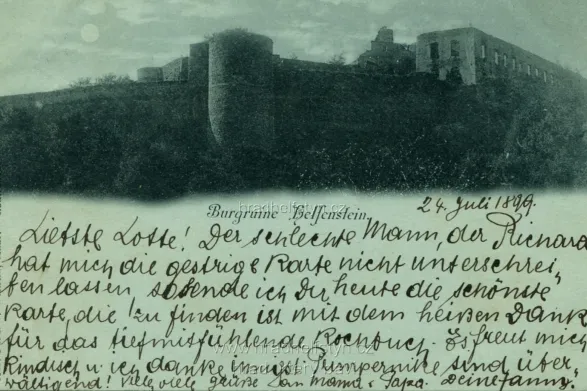 www.hradhelfstyn.cz
Burgruine Helfenstein.
24. Juli 1899.
Liebste Lotte! Der schlechte Mann, der Richard
hat mich die gestrige Karte nicht unterschrei,
ben lassen, so sende ich Dir heute die schönste
Karte, die zu finden ist mit dem heißen Dank
für das tiefmitfühlende Kochbuch. Es freut mich
kindisch u. ich danke Pumpernikl sind über,
www.hradhelfstyn.cz
wältigend! Viele viele Grüße Mama Papa. Deine Fanny.